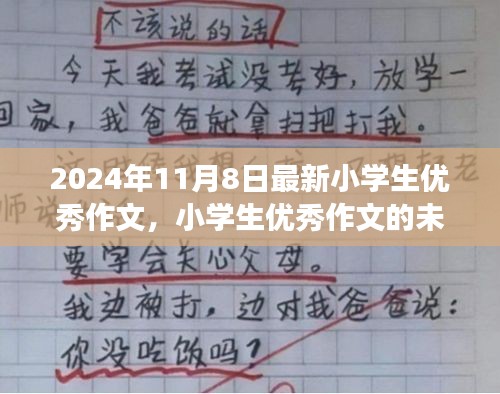 不该说的话
今天我考试没考好，放学一
回家，我爸爸就拿扫把打我。
2024年11月8日最新小学生优
秀作文，小学生优秀作文的未
要学会关心父母。
我边被打，边对我爸爸说：
你没吃饭吗？